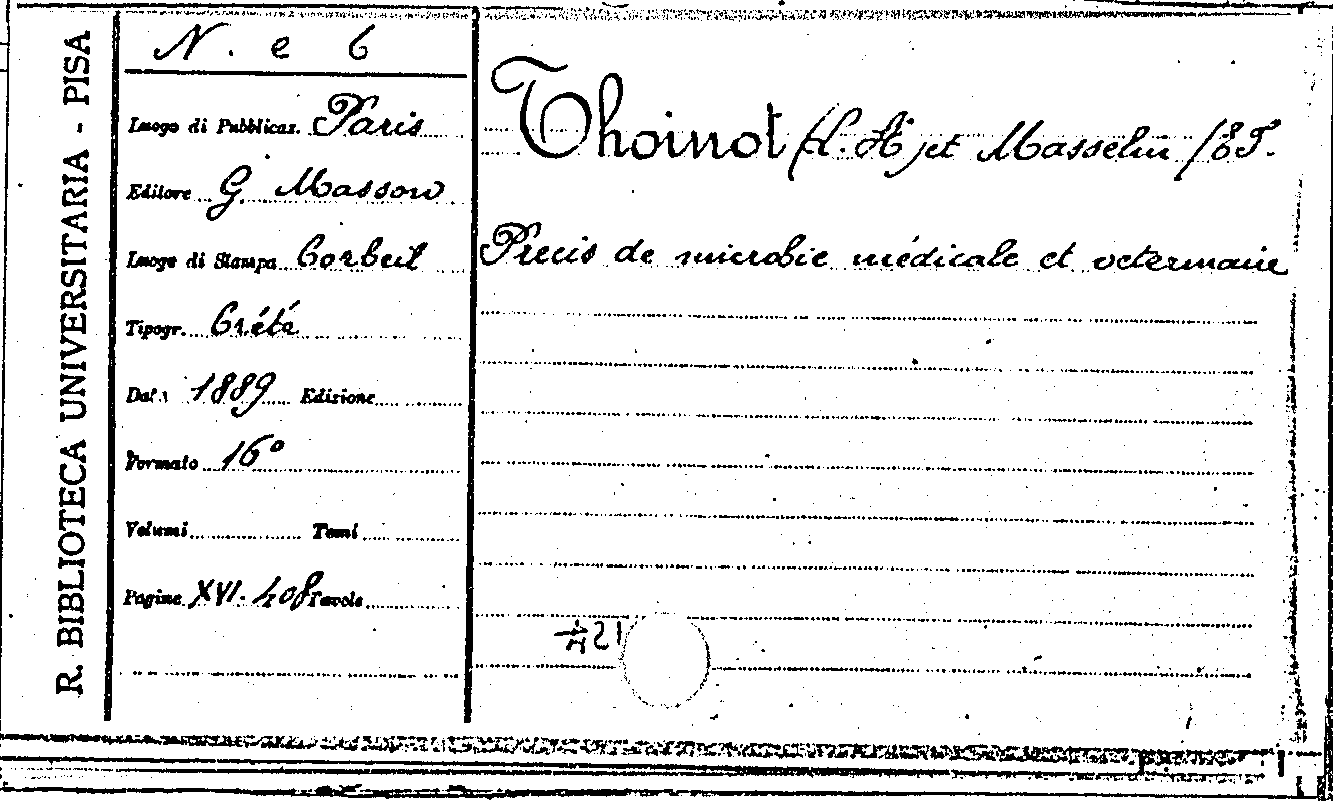 R. BIBLIOTECA UNIVERSITARIA - PISA
N. e 6
Luogo di Pubblicaz. Paris
Editore G. Masson
Luogo di Stampa Corbeil
Tipogr. Crété
Data 1889 Edizione
Formato 16º
Volumi Tomi
Pagine XVI-408 Tavole
Thoinot (L. H) et Masselin (E.J.
Precis de microbie médicale et veterinaire